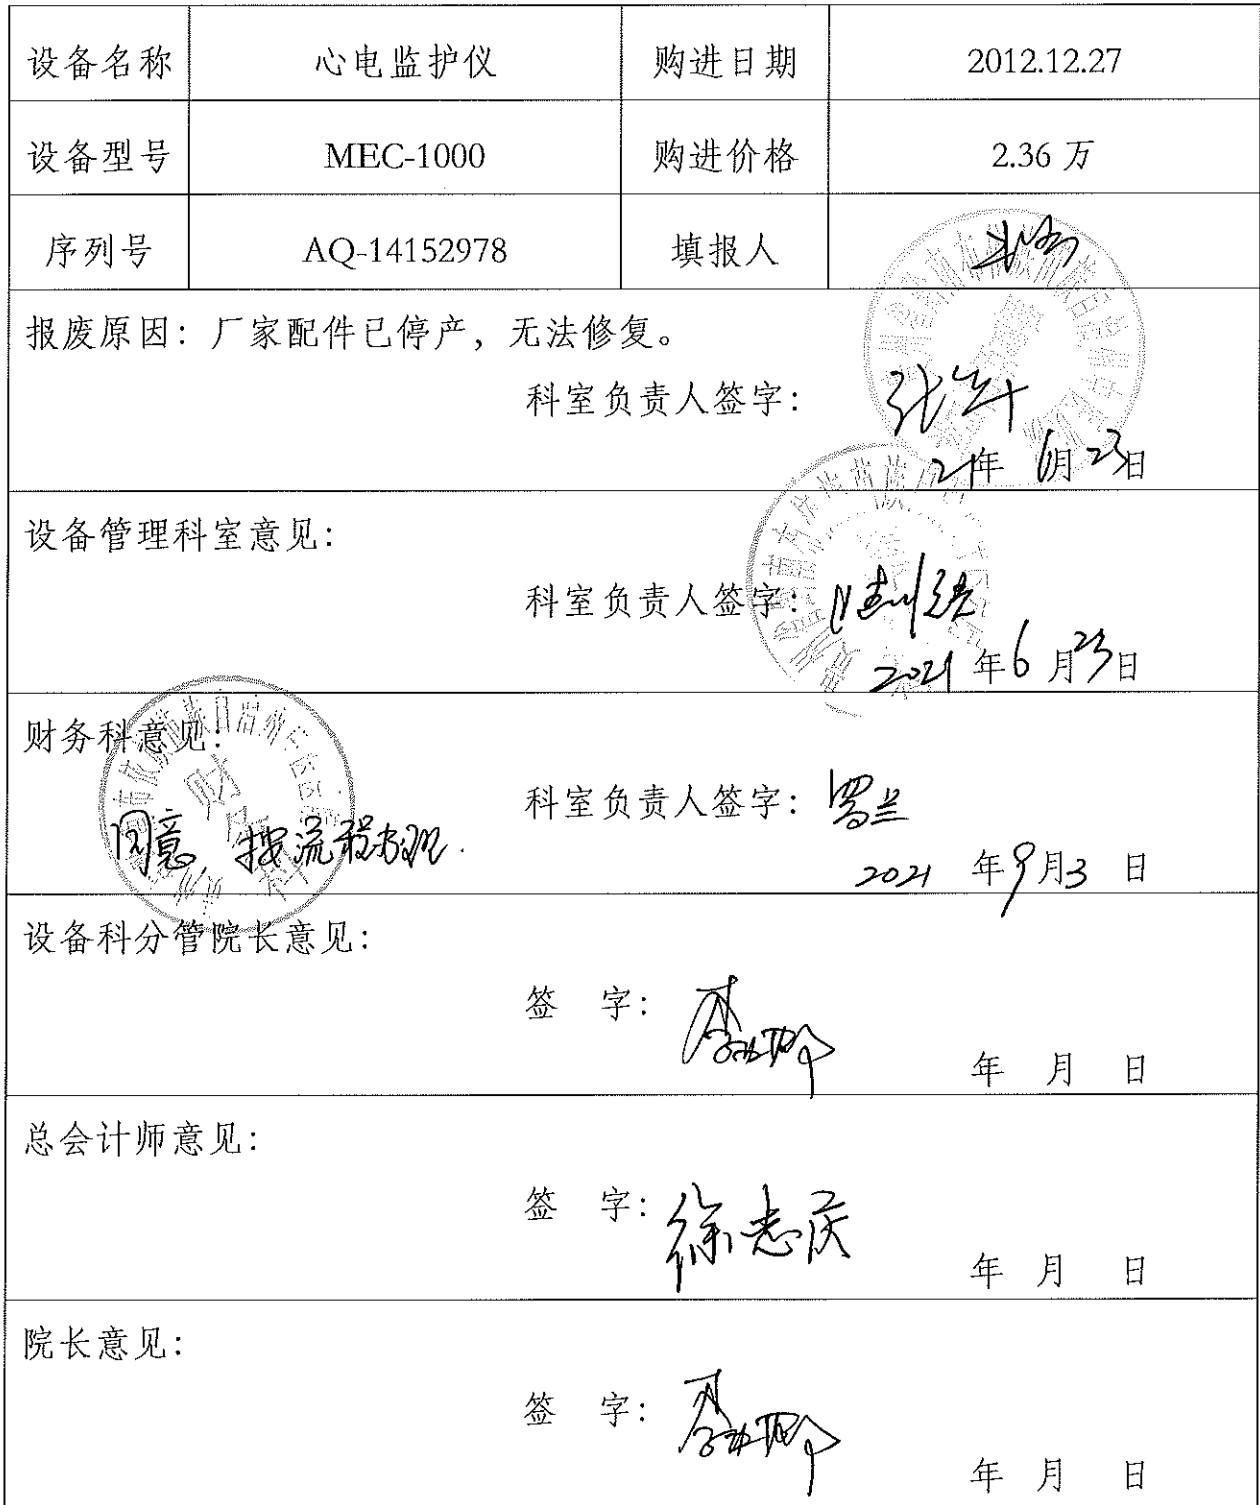 设备名称 心电监护仪 购进日期 2012.12.27
设备型号 MEC-1000 购进价格 2.36 万
序列号 AQ-14152978 填报人
报废原因：厂家配件已停产，无法修复。
科室负责人签字：
21年 6月 23日
设备管理科室意见：
科室负责人签字：
2021 年 6 月 23 日
财务科意见：
科室负责人签字：罗兰
同意，按流程办理.
2021 年 9 月 3 日
财务科
设备科分管院长意见：
签 字：
年 月 日
总会计师意见：
签 字：徐志庆
年 月 日
院长意见：
签 字：
年 月 日